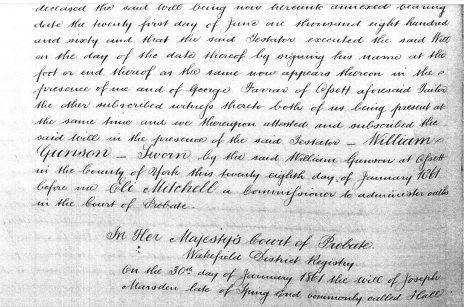 deceased the said Will being now hereunto annexed bearing
date the twenty first day of June one thousand eight hundred
and sixty and that the said Testator executed the said Will
on the day of the date thereof by signing his name at the
foot or end thereof as the same now appears thereon in the
presence of me and of George Farrar of Ossett aforesaid Tailor
the other subscribed witness thereto both of us being present at
the same time and we thereupon attested and subscribed the
said Will in the presence of the said Testator – William
Gunson – Sworn by the said William Gunson at Ossett
in the County of York this twenty eighth day of January 1861
before me Eli Mitchell a Commissioner to administer oaths
in the Court of Probate.
In Her Majesty's Court of Probate.
Wakefield District Registry
On the 30th day of January 1861 the Will of Joseph
Marsden late of Spring End commonly called Hall